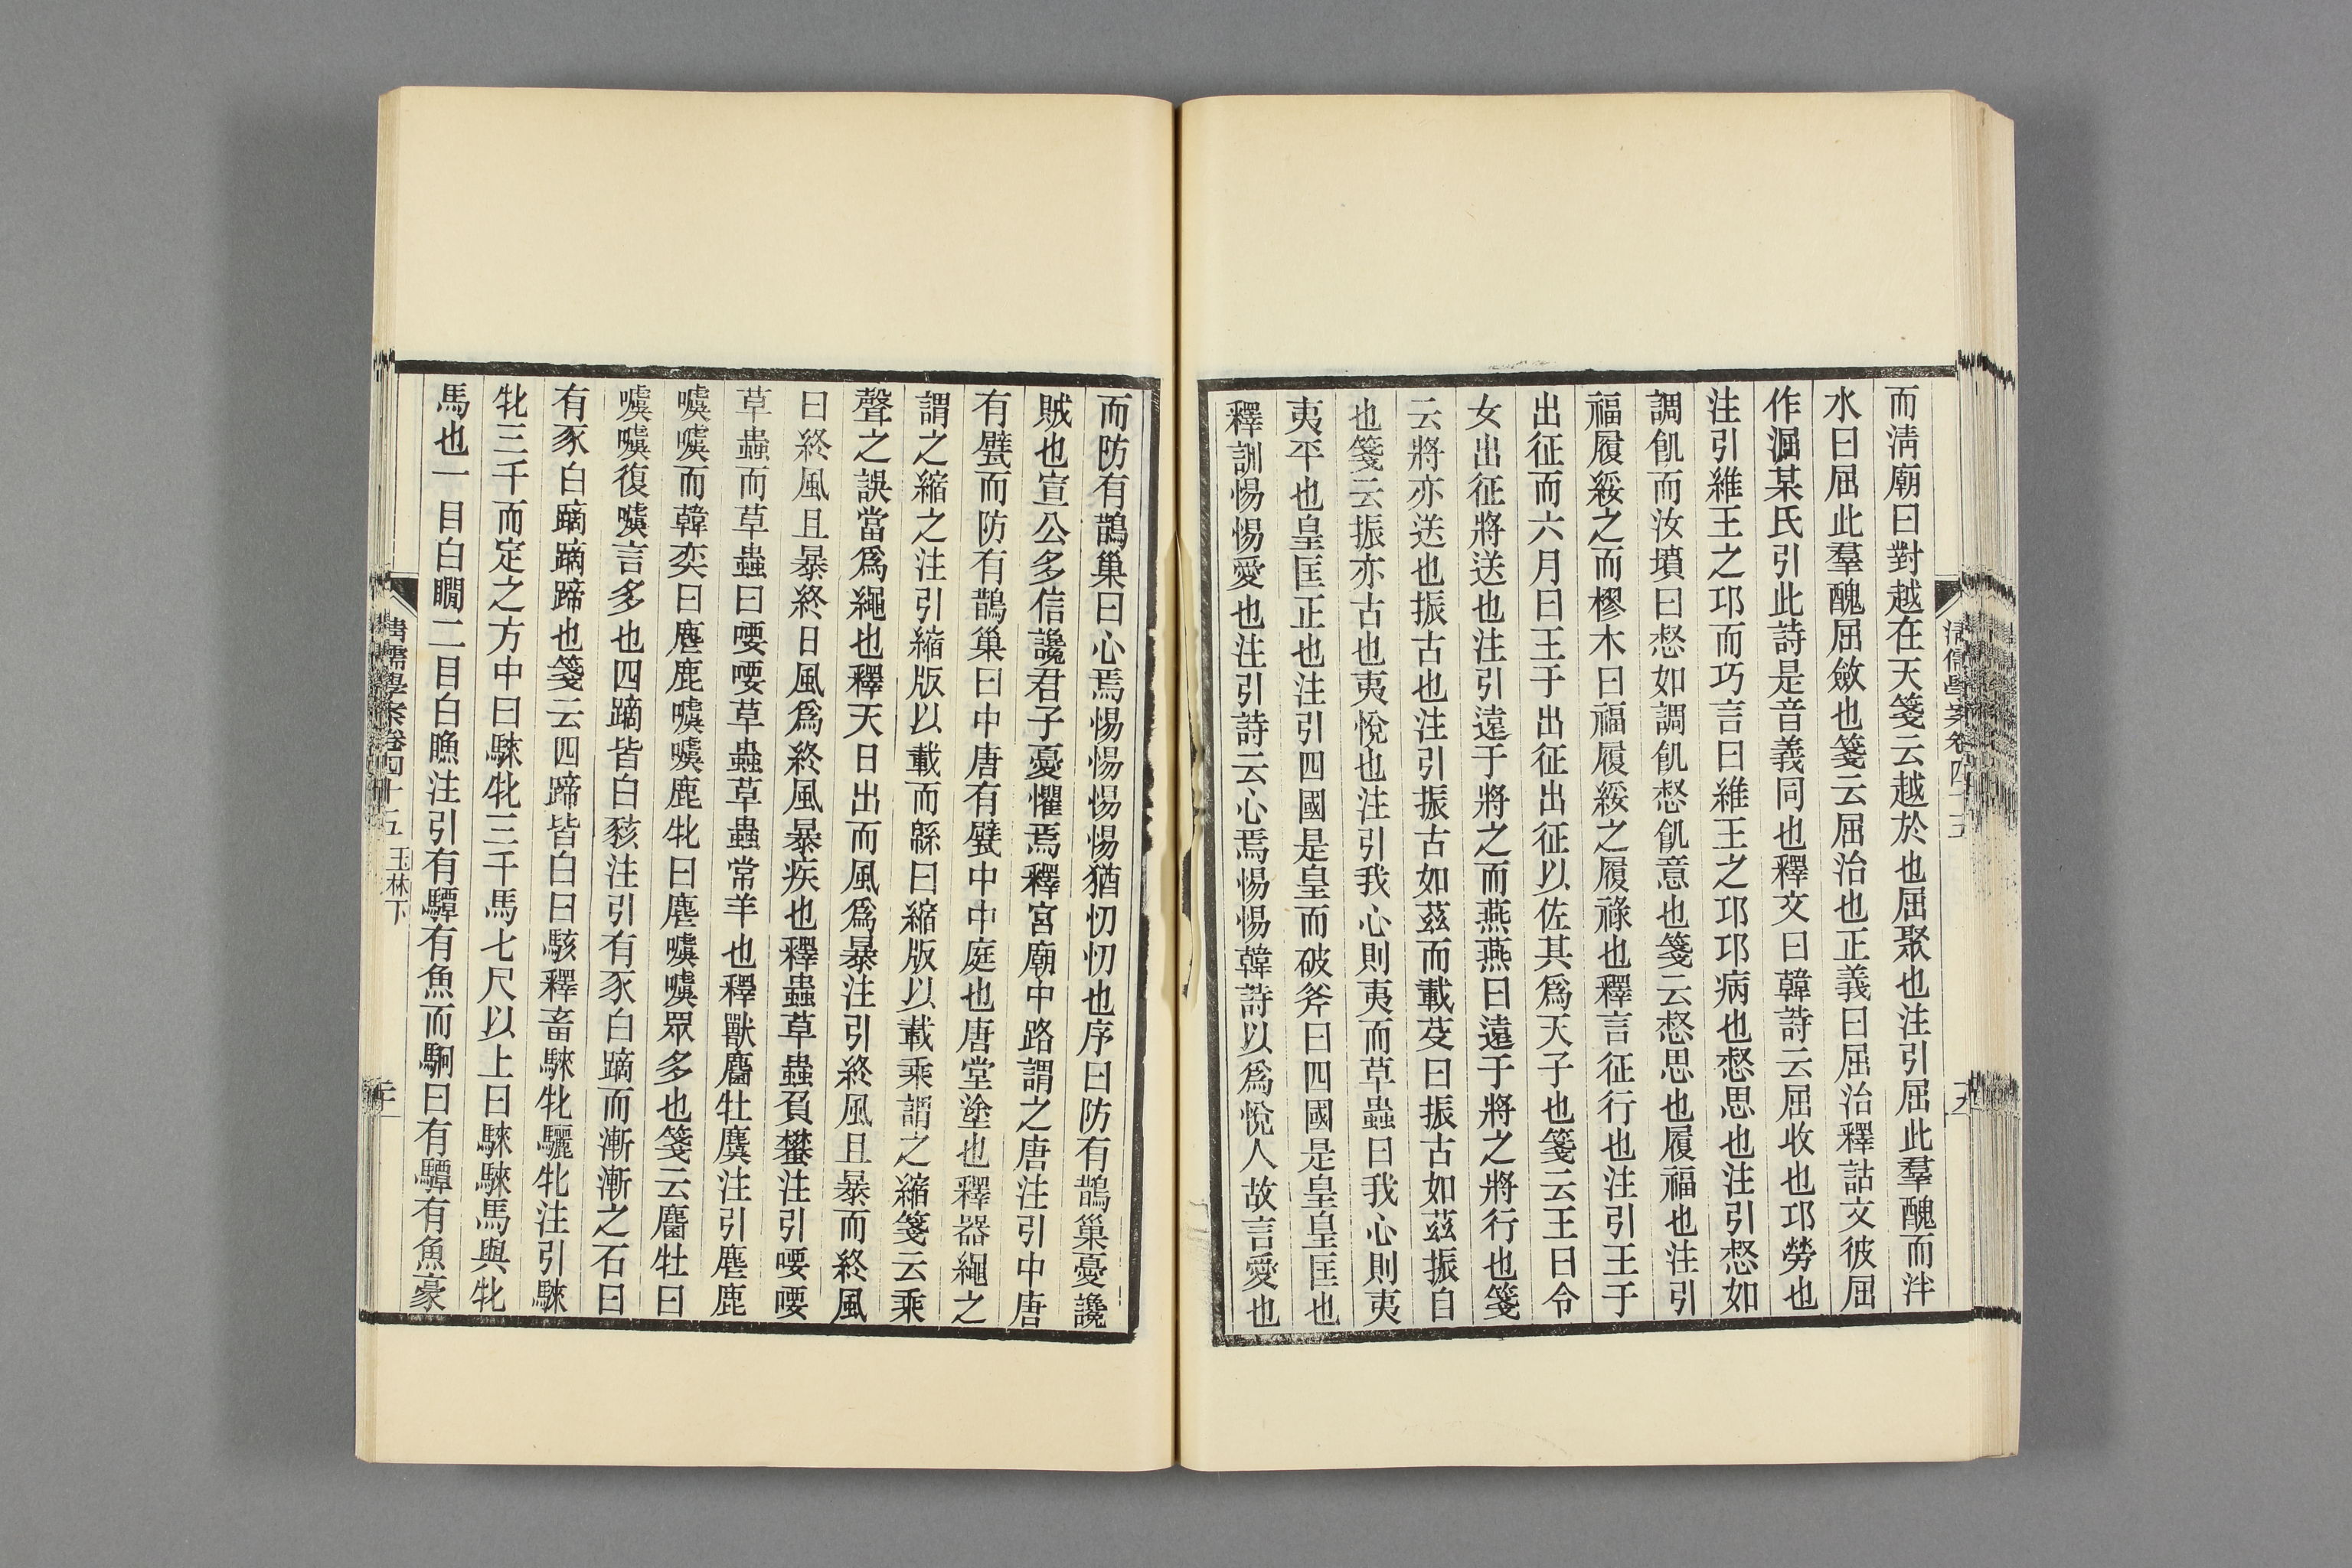 而淸廟曰對越在天箋云越於也屈聚也注引屈此羣醜而泮
水曰屈此羣醜屈斂也箋云屈治也正義曰屈治釋詁文彼屈
作淈某氏引此詩是音義同也釋文曰韓詩云屈收也邛勞也
注引維王之邛而巧言曰維王之邛邛病也惄思也注引惄如
調飢而汝墳曰惄如調飢惄飢意也箋云惄思也履福也注引
福履綏之而樛木曰福履綏之履祿也釋言征行也注引王于
出征而六月曰王于出征出征以佐其爲天子也箋云王曰令
女出征將送也注引遠于將之而燕燕曰遠于將之將行也箋
云將亦送也振古也注引振古如茲而載芟曰振古如茲振自
也箋云振亦古也夷悅也注引我心則夷而草蟲曰我心則夷
夷平也皇匡正也注引四國是皇而破斧曰四國是皇皇匡也
釋訓惕惕愛也注引詩云心焉惕惕韓詩以爲悅人故言愛也
而防有鵲巢曰心焉惕惕惕惕猶忉忉也序曰防有鵲巢憂讒
賊也宣公多信讒君子憂懼焉釋宮廟中路謂之唐注引中唐
有甓而防有鵲巢曰中唐有甓中中庭也唐堂塗也釋器繩之
謂之縮之注引縮版以載而緜曰縮版以載乘謂之縮箋云乘
聲之誤當爲繩也釋天日出而風爲暴注引終風且暴而終風
曰終風且暴終日風爲終風暴疾也釋蟲草蟲負蠜注引喓喓
草蟲而草蟲曰喓喓草蟲草蟲常羊也釋獸麕牡麌注引麀鹿
噳噳而韓奕曰麀鹿噳噳鹿牝曰麀噳噳眾多也箋云麕牡曰
噳噳復噳言多也四蹢皆白豥注引有豕白蹢而漸漸之石曰
有豕白蹢蹢蹄也箋云四蹄皆白曰駭釋畜騋牝驪牝注引騋
牝三千而定之方中曰騋牝三千馬七尺以上曰騋騋馬與牝
馬也一目白瞷二目白瞧注引有驔有魚而駉曰有驔有魚豪
清儒學案卷四十五 玉林下